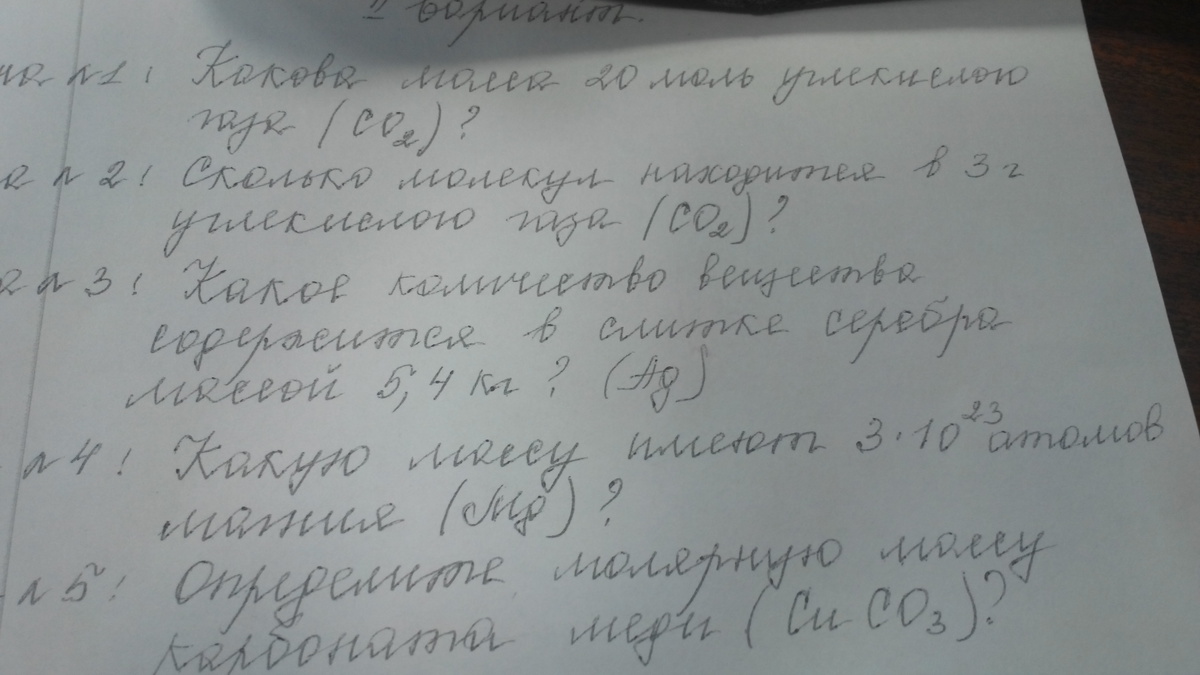 II вариант.
ча №1: Какова масса 20 моль углекислого
газа (CO₂)?
а №2: Сколько молекул находится в 3 г
углекислого газа (CO₂)?
а №3: Какое количество вещества
содержится в слитке серебра
массой 5,4 кг? (Ag)
№4: Какую массу имеют 3·10²³ атомов
магния (Mg)?
№5: Определите молярную массу
карбоната меди (CuCO₃)?